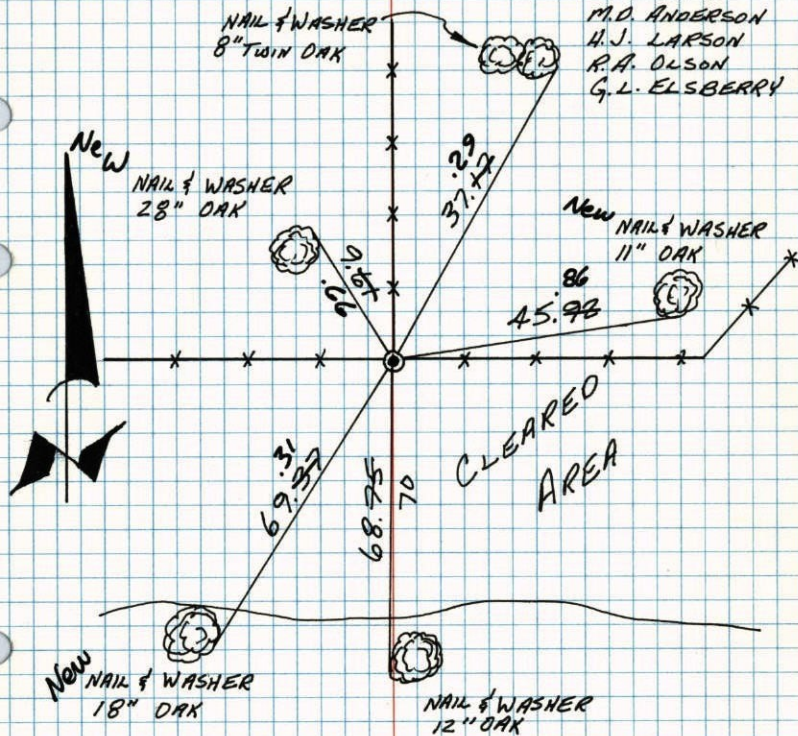 NAIL & WASHER
8" TWIN OAK
M.D. ANDERSON
H.J. LARSON
R.A. OLSON
G.L. ELSBERRY
New
NAIL & WASHER
28" OAK
.29
New
NAIL & WASHER
11" OAK
.66
.86
45.92
CLEARED
AREA
.31
69.37
68.75
70
New
NAIL & WASHER
18" OAK
NAIL & WASHER
12" OAK